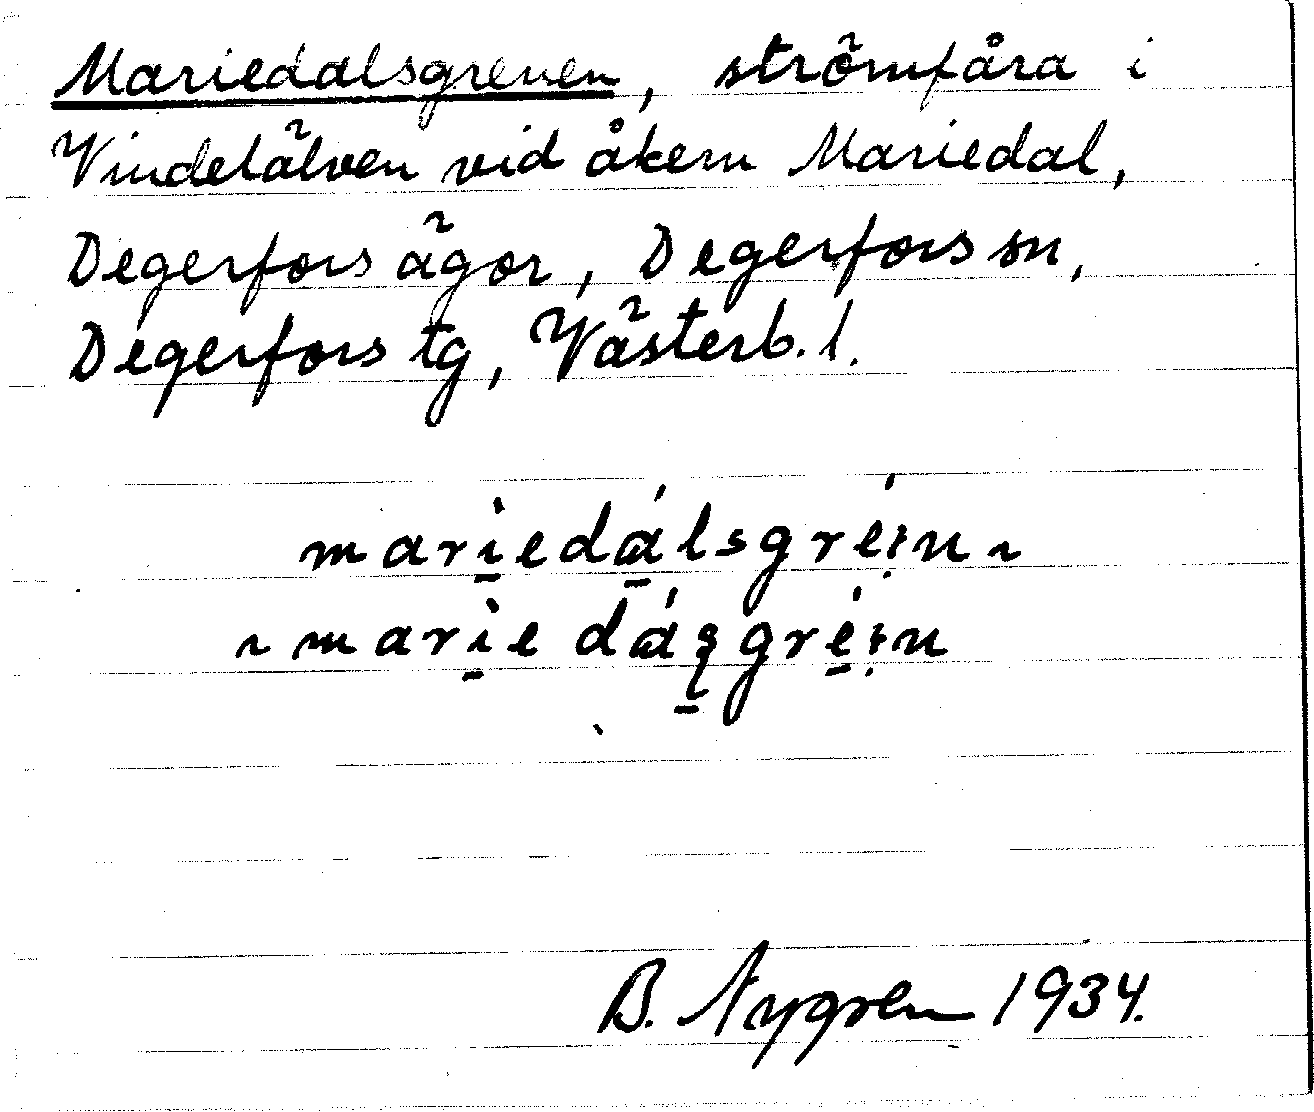 Mariedalsgrenen, strömfåra i
Vindelälven vid åkern Mariedal,
Degerfors ägor, Degerfors sn,
Degerfors tg, Västerb. l.
mari̱edá̱lsgréi̯n ~
~ mari̱e dá̱ʂgré̱i̯n
B. Nygren 1934.